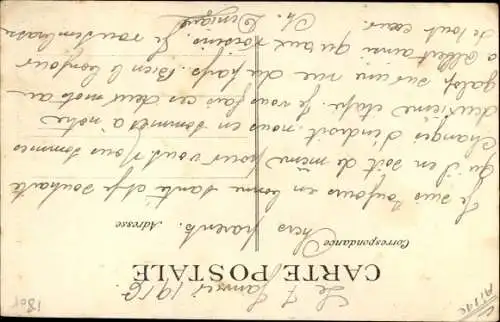 Le 7 Janvier 1916
CARTE POSTALE
Correspondance
Adresse
Chers parents.
Je suis toujours en bonne santé et je souhaite
qu'il en soit de même pour vous. Nous sommes
changés d'endroit nous en sommes à notre
deuxième étape. Je vous fais ces deux mots au
galop sur une vue du pays. Bien le bonjour
a Albert ainsi qu'aux voisins. Je vous embrasse
de tout cœur.
Ch.
1808